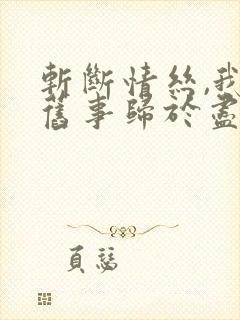 斬斷情絲,我
舊事歸於盡
頁誌